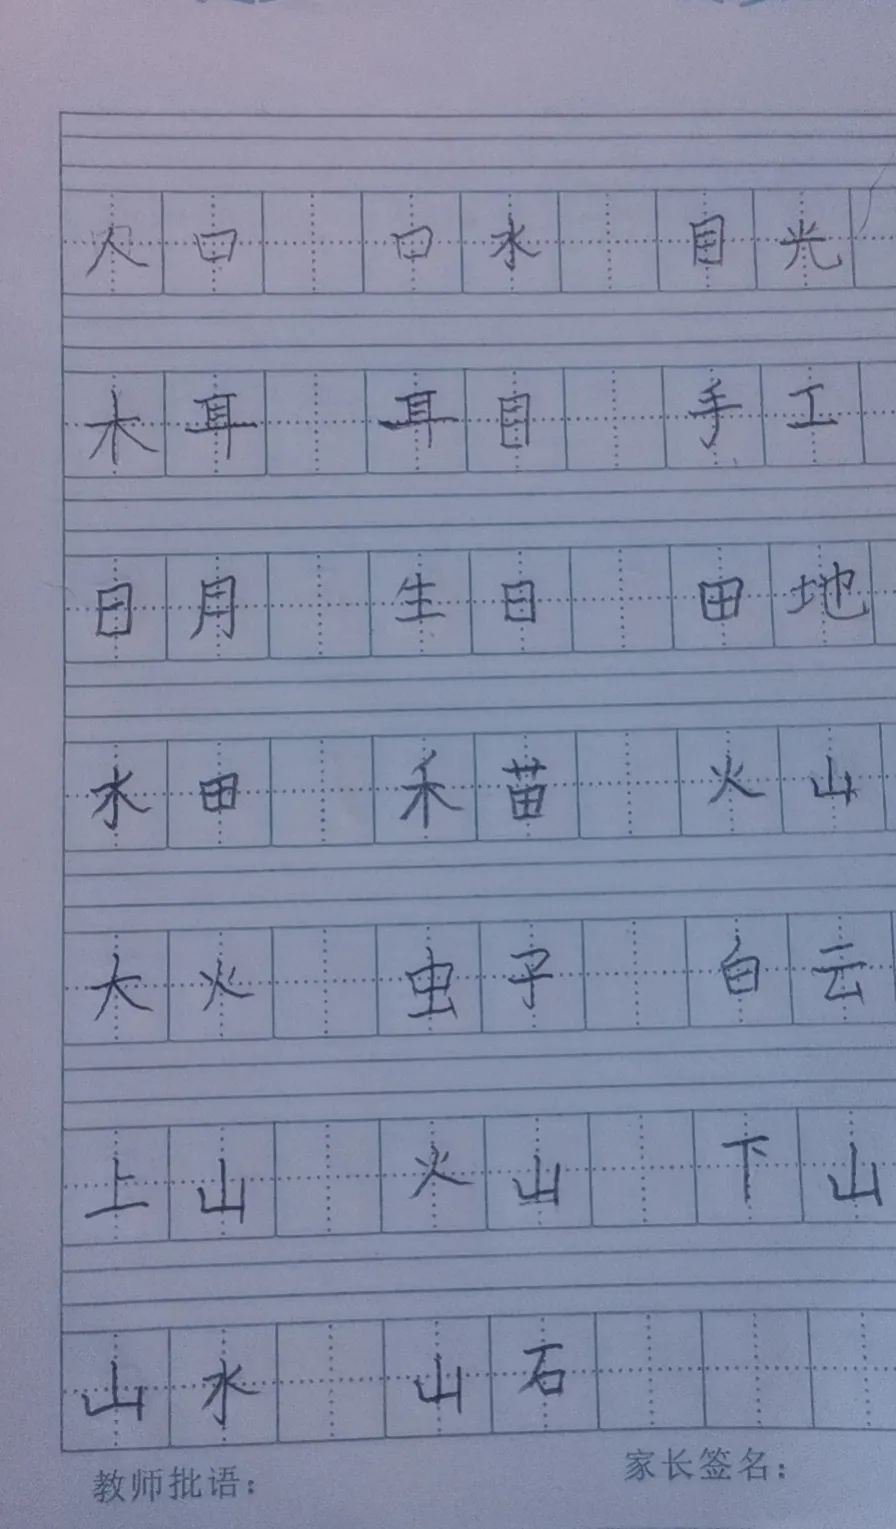 人口 口水 目光
木耳 耳目 手工
日月 生日 田地
水田 禾苗 火山
大火 虫子 白云
上山 火山 下山
山水 山石
教师批语： 家长签名：